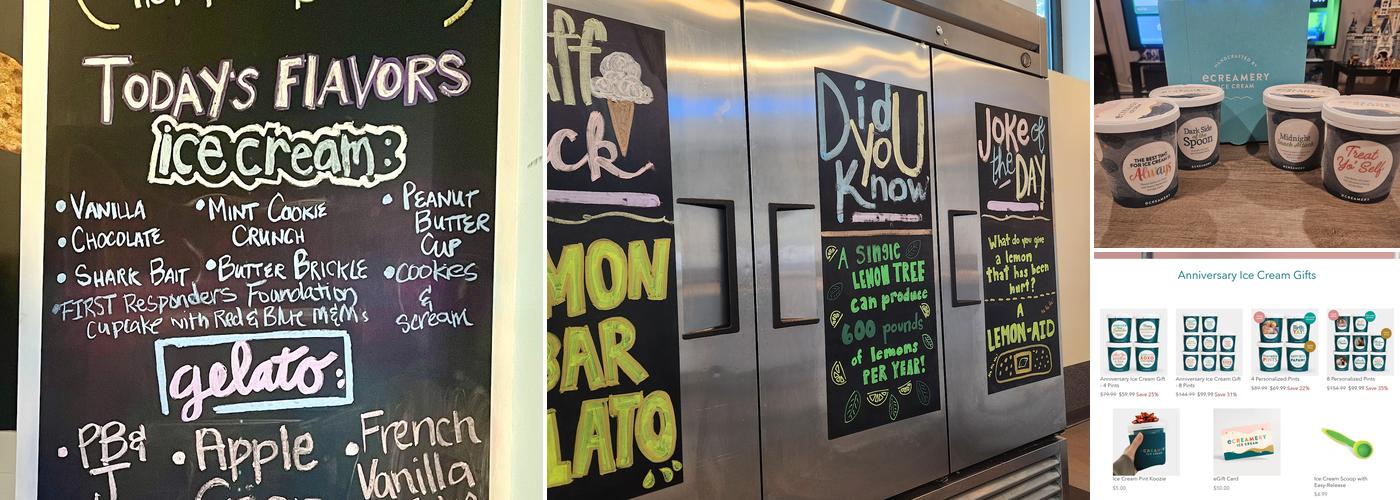 TODAY'S FLAVORS
ice cream:
• VANILLA
• CHOCOLATE
• SHARK BAIT
• MINT COOKIE
CRUNCH
• BUTTER BRICKLE
• PEANUT
BUTTER
CUP
• COOKIES
&
SCREAM
*FIRST Responders Foundation
cupcake with Red & Blue M&Ms
gelato:
• PB&
J
• Apple
• French
Vanilla
ff
ck
MON
BAR
LATO
Did
you
Know
A SINGLE
LEMON TREE
can produce
600 pounds
of lemons
PER YEAR!
JOKE of
the DAY
What do you give
a lemon
that has been
hurt?
A
LEMON-AID
HANDCRAFTED BY
eCREAMERY
ICE CREAM
THE BEST TIME
FOR ICE CREAM IS
Always
ECREAMERY
Dark Side
of the
Spoon
ECREAMERY
Midnight
Snack Attack
ECREAMERY
Treat
Yo' Self
ECREAMERY
Anniversary Ice Cream Gifts
Anniversary Ice Cream Gift
- 4 Pints
$79.99 $59.99 Save 25%
Anniversary Ice Cream Gift
- 8 Pints
$144.99 $99.99 Save 31%
4 Personalized Pints
$89.99 $69.99 Save 22%
8 Personalized Pints
$154.99 $99.99 Save 35%
Ice Cream Pint Koozie
$5.00
eCREAMERY
ICE CREAM
eGift Card
$50.00
Ice Cream Scoop with
Easy-Release
$6.99